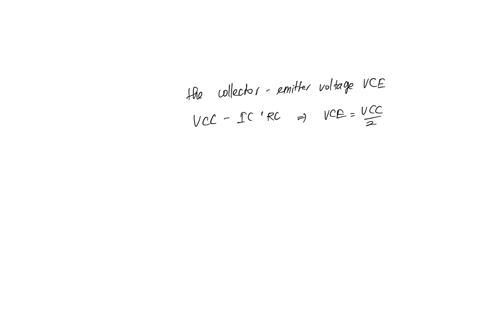 the collector - emitter voltage VCE
VCC - IC ' RC ⇒ VCE = VCC/2